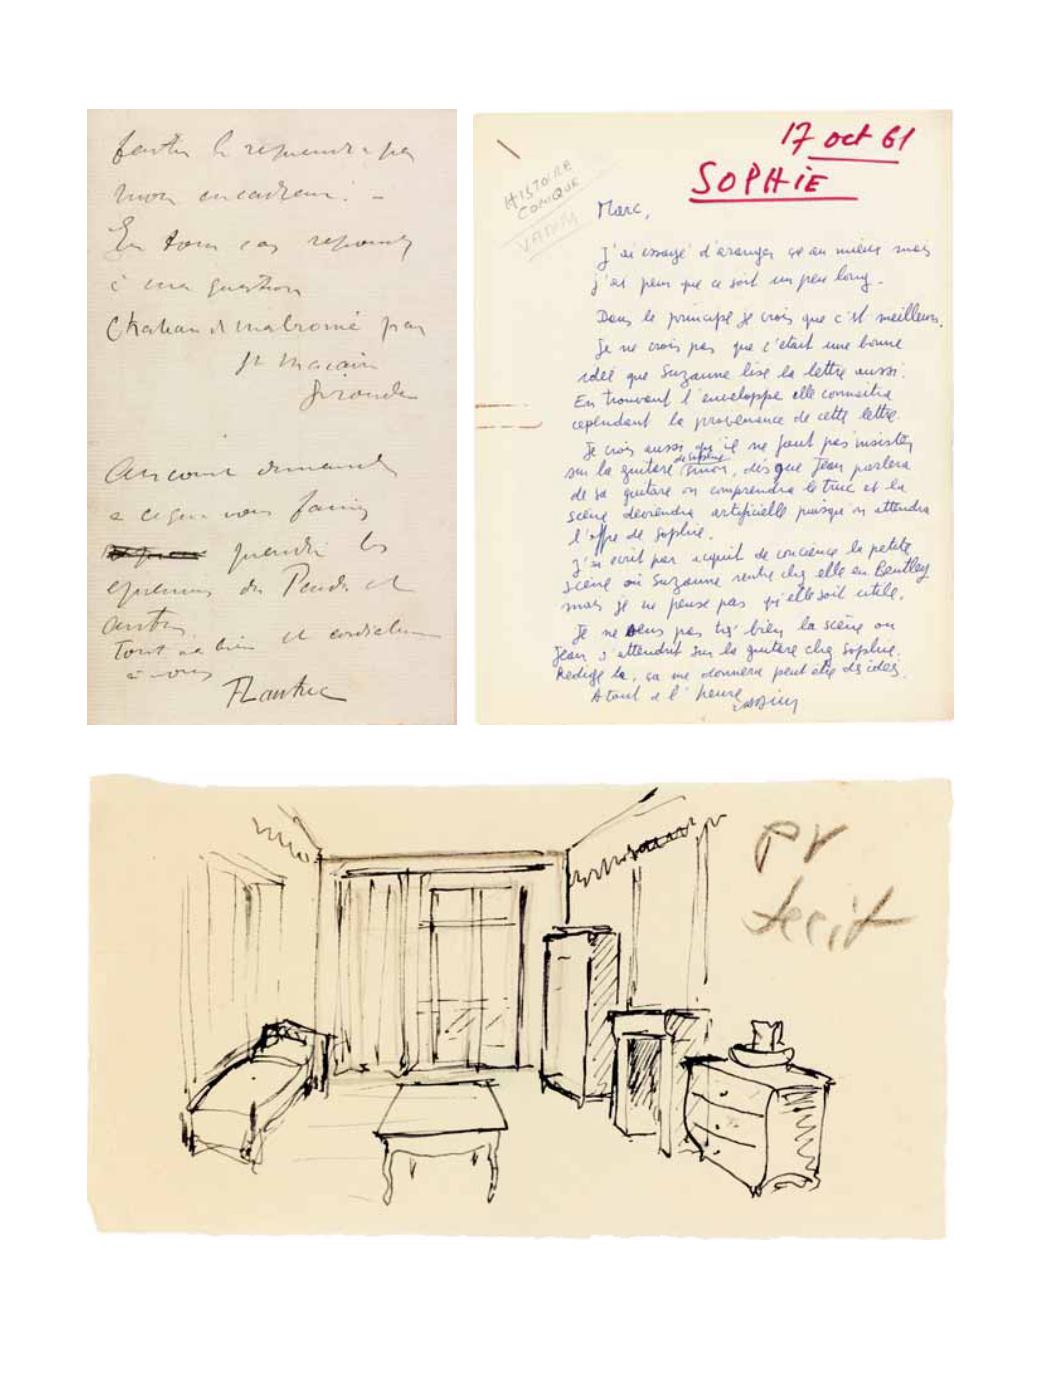 mon encadreur. –
En tous cas repondez
à ma question
Chateau de Malromé par
St Macaire
Gironde
demandez
a ce que vous
les
epreuves du Pendu et
autres
Tout à bien et cordialement
à vous
HTLautrec
17 oct 61
SOPHIE
HISTOIRE
COMIQUE
VADIM
Marc,
J'ai essayé d'aranger ça au mieux mais
j'ai peur que ce soit un peu long.
Dans le principe je crois que c'est meilleur.
Je ne crois pas que c'était une bonne
idée que Suzanne lise la lettre aussi.
En trouvant l'enveloppe elle connaitra
cependant la provenance de cette lettre.
Je crois aussi qu'il ne faut pas insister
sur la guitare de Sophie sinon, dès que Jean parlera
de sa guitare on comprendra le truc et la
scène deviendra artificielle puisqu'on attendra
l'offre de Sophie.
J'ai écrit par acquit de concience la petite
scène où Suzanne rentre chez elle en Bentley
mais je ne pense pas qu'elle soit utile.
Je ne sens pas très bien la scène ou
Jean s'attendrit sur la guitare chez Sophie.
Rédige la, ça me donnera peut être des idées.
A tout a l'heure
pr